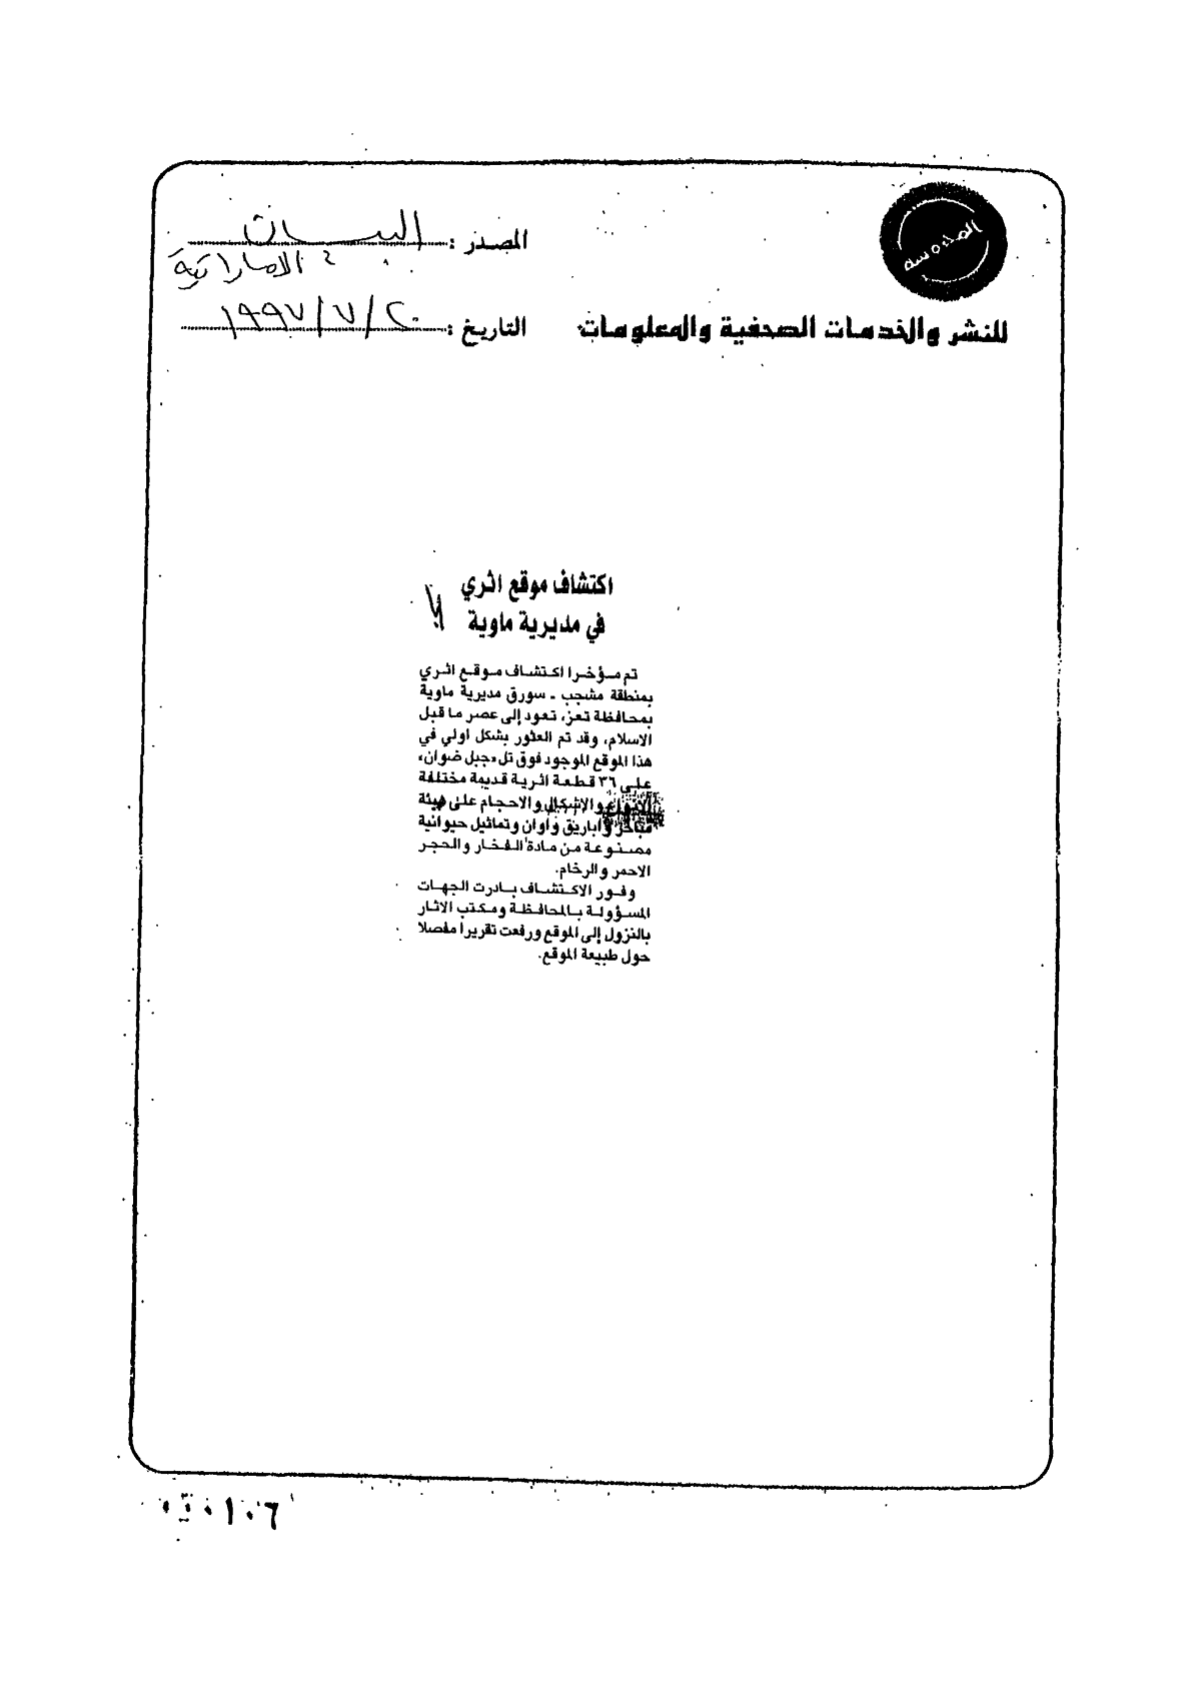 المصدر : البيان
الاماراتية
للنشر والخدمات الصحفية والمعلومات
التاريخ : ٢٠/٧/١٩٩٧
اكتشاف موقع اثري
في مديرية ماوية
تم مؤخرا اكتشاف موقع اثري
بمنطقة مشجب ـ سورق مديرية ماوية
بمحافظة تعز، تعود إلى عصر ما قبل
الاسلام، وقد تم العثور بشكل اولي في
هذا الموقع الموجود فوق تل «جبل ضوان»
على ٣٦ قطعة اثرية قديمة مختلفة
الانواع والاشكال والاحجام على هيئة
مباخر واباريق وأوان وتماثيل حيوانية
مصنوعة من مادة الفخار والحجر
الاحمر والرخام.
وفور الاكتشاف بادرت الجهات
المسؤولة بالمحافظة ومكتب الاثار
بالنزول إلى الموقع ورفعت تقريرا مفصلا
حول طبيعة الموقع.